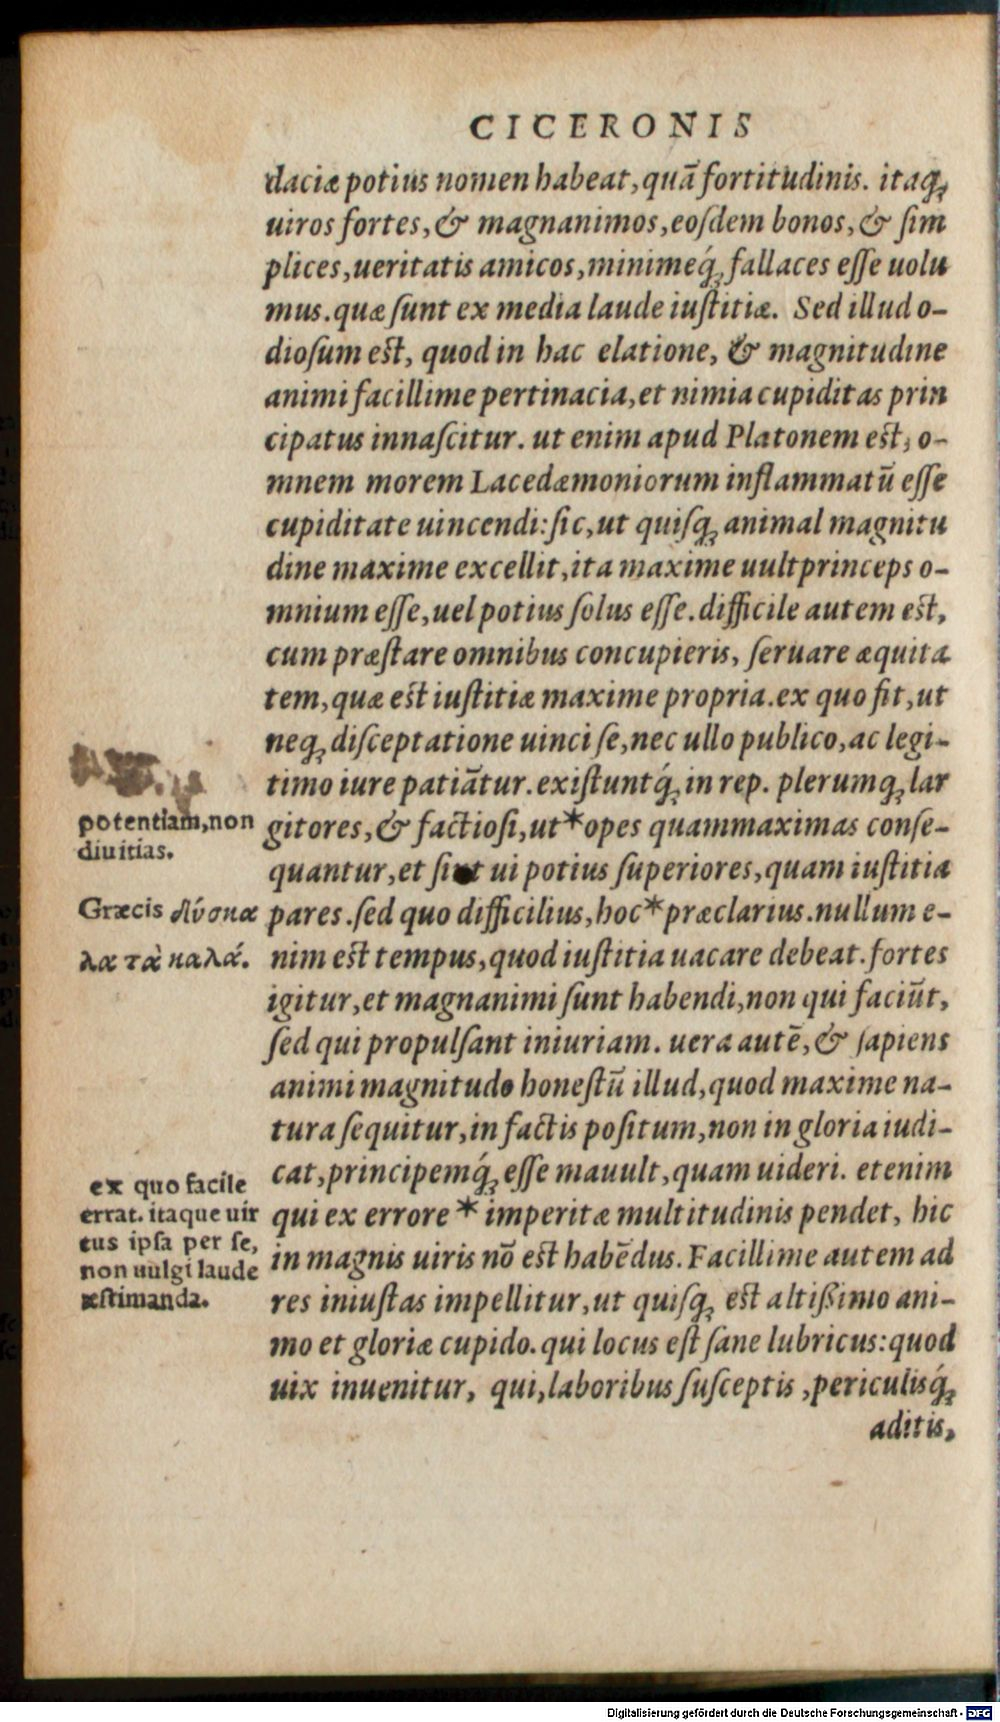 CICERONIS
daciæ potius nomen habeat, quã fortitudinis. itaq;
uiros fortes, & magnanimos, eosdem bonos, & sim
plices, ueritatis amicos, minimeq́; fallaces esse uolu
mus. quæ sunt ex media laude iustitiæ. Sed illud o-
diosum est, quod in hac elatione, & magnitudine
animi facillime pertinacia, et nimia cupiditas prin
cipatus innascitur. ut enim apud Platonem est, o-
mnem morem Lacedæmoniorum inflammatũ esse
cupiditate uincendi: sic, ut quisq; animal magnitu
dine maxime excellit, ita maxime uult princeps o-
mnium esse, uel potius solus esse. difficile autem est,
cum præstare omnibus concupieris, seruare æquita
tem, quæ est iustitiæ maxime propria. ex quo fit, ut
neq; disceptatione uinci se, nec ullo publico, ac legi-
timo iure patiãtur. existuntq́; in rep. plerumq; lar
gitores, & factiosi, ut * opes quammaximas conse-
quantur, et sint ui potius superiores, quam iustitia
pares. sed quo difficilius, hoc * præclarius. nullum e-
nim est tempus, quod iustitia uacare debeat. fortes
igitur, et magnanimi sunt habendi, non qui faciũt,
sed qui propulsant iniuriam. uera autẽ, & sapiens
animi magnitudo honestũ illud, quod maxime na-
tura sequitur, in factis positum, non in gloria iudi-
cat, principemq́; esse mauult, quam uideri. etenim
qui ex errore * imperitæ multitudinis pendet, hic
in magnis uiris nõ est habẽdus. Facillime autem ad
res iniustas impellitur, ut quisq; est altißimo ani-
mo et gloriæ cupido. qui locus est sane lubricus: quod
uix inuenitur, qui, laboribus susceptis, periculisq́;
aditis,
potentiam, non
diuitias.
Græcis δύσκο
λα τὰ καλά.
ex quo facile
errat. itaque uir
tus ipsa per se,
non uulgi laude
æstimanda.
Digitalisierung gefördert durch die Deutsche Forschungsgemeinschaft - DFG